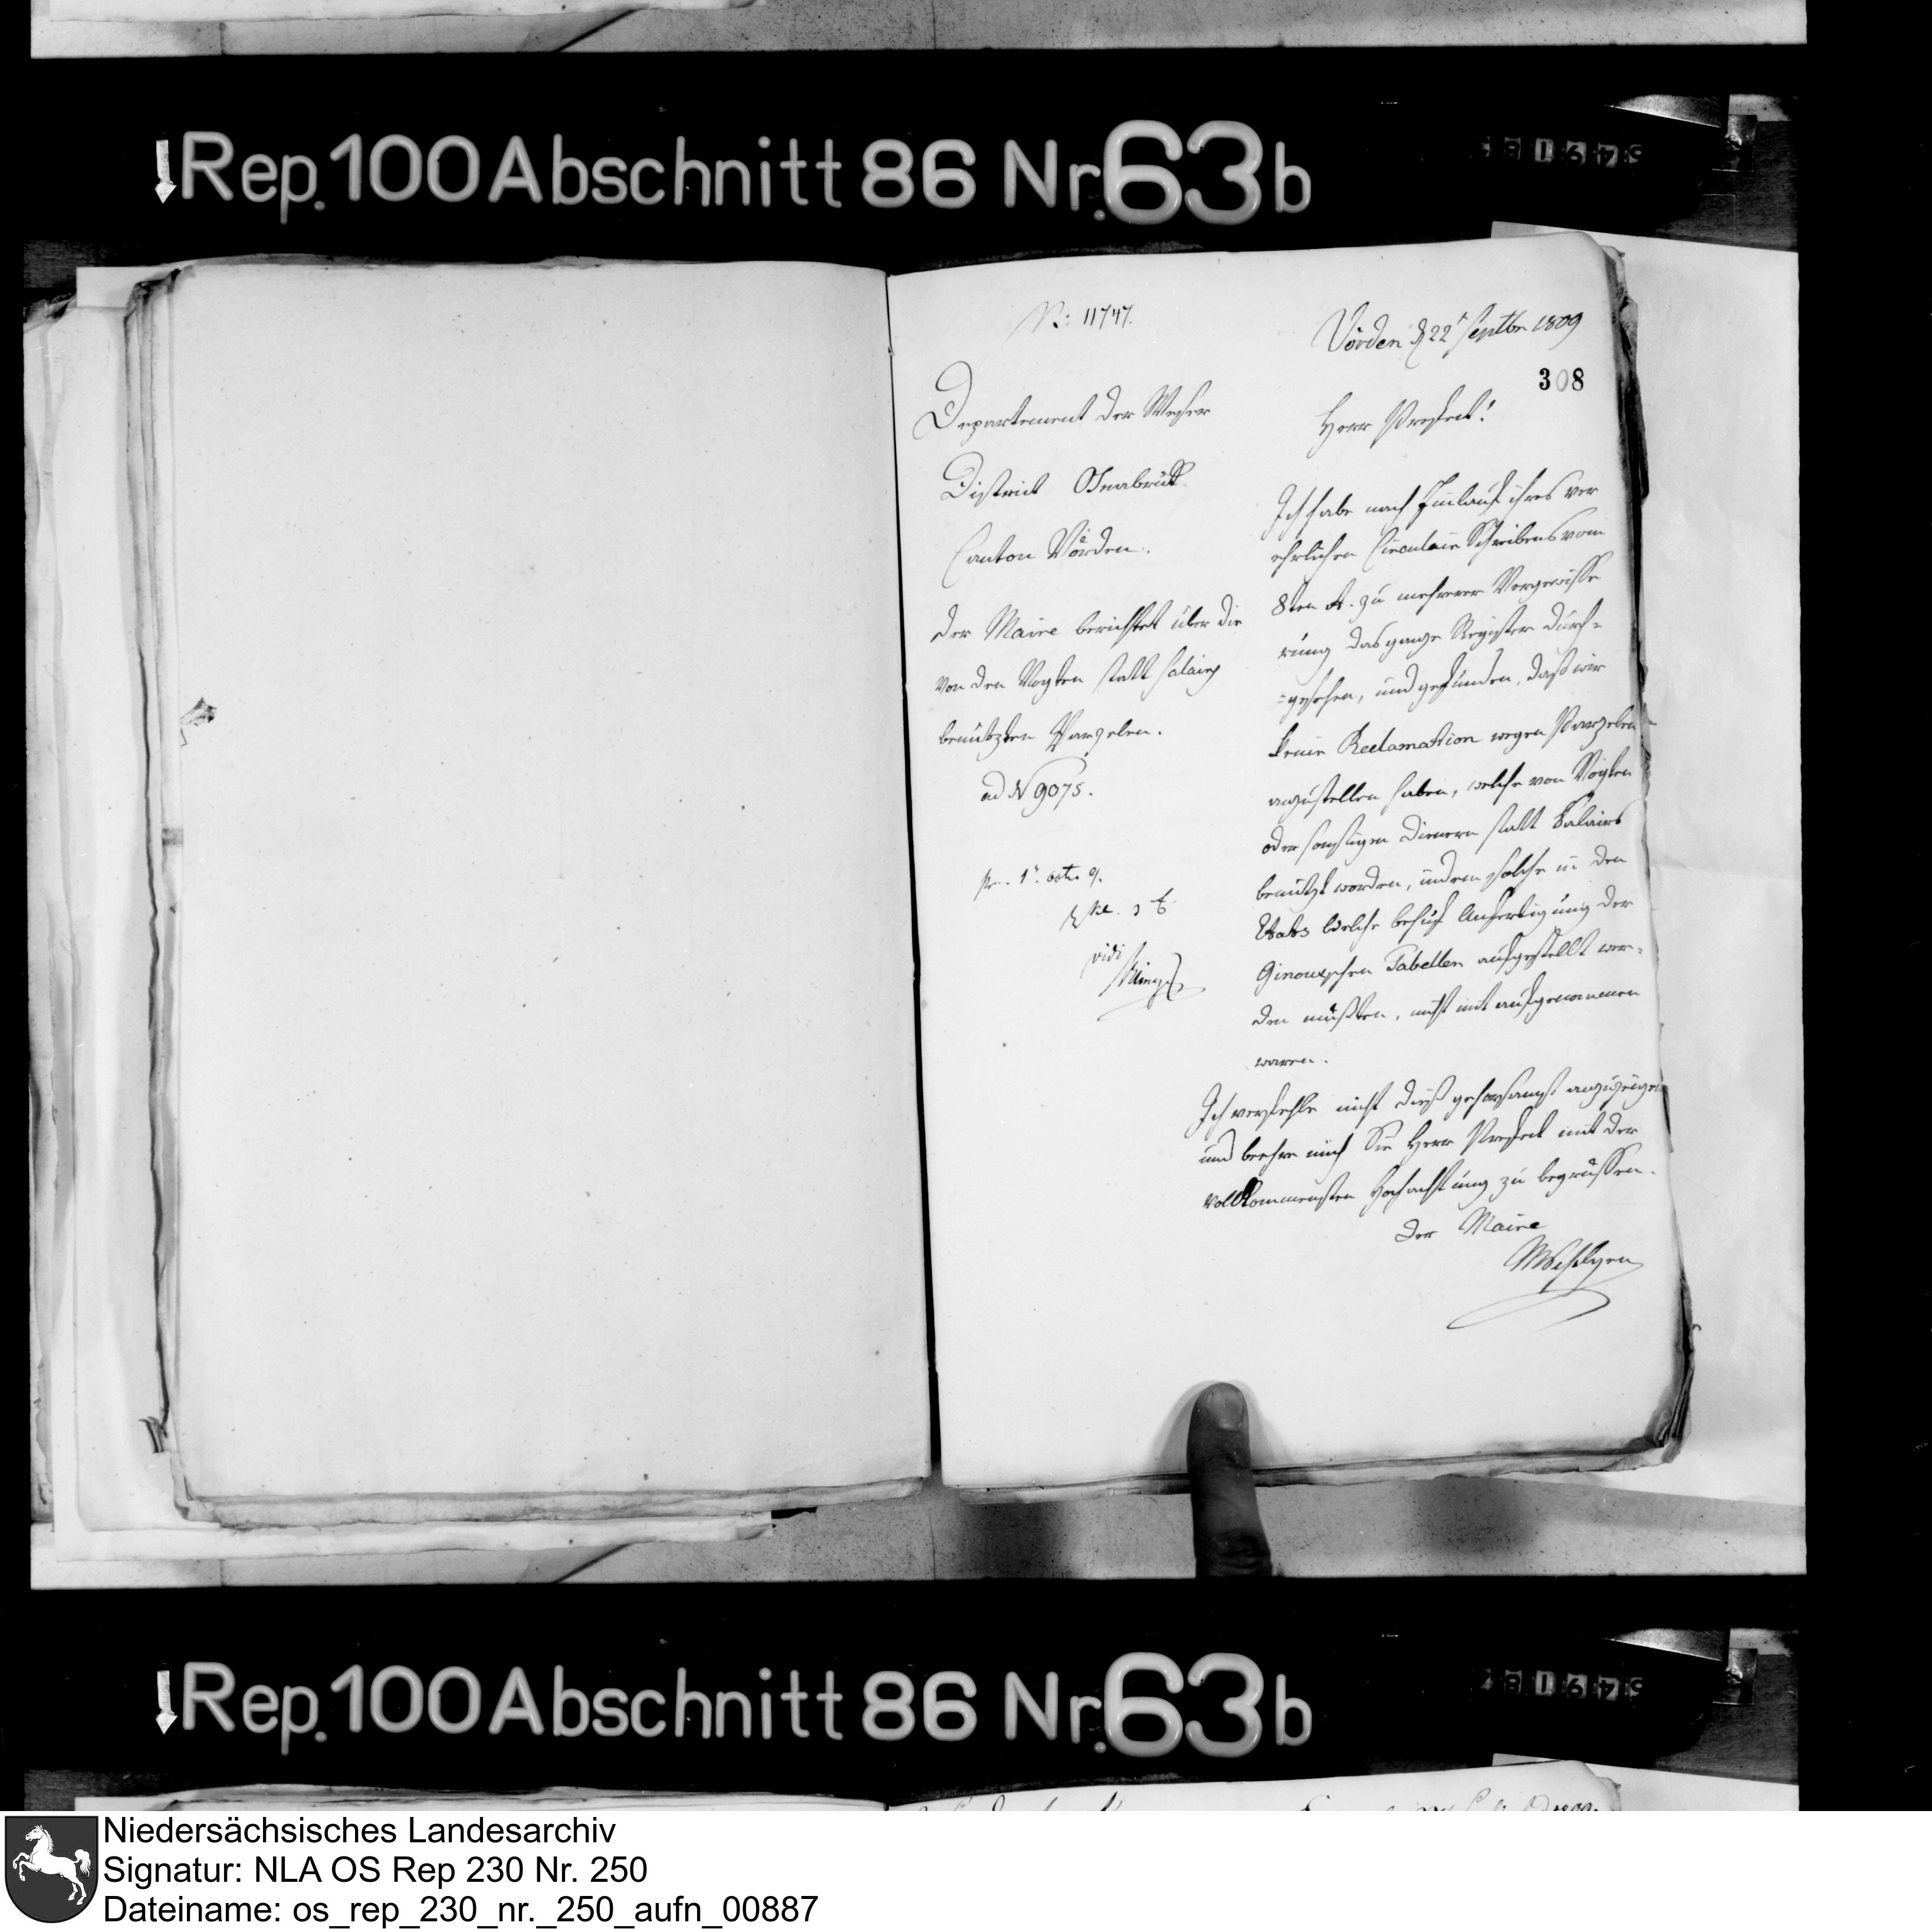 Rep. 100 Abschnitt 86 Nr. 63 b
N: 11747.
Vörden d 22t Septbr 1809
308
Departement der Weser
District Osnabrück
Canton Vörden.
Der Maire berichtet über die
von den Vögten statt Salairs
benützten Parzelen.
ad N 9075.
pr. 1r. octr 9.
vidi
Herr Prefect!
Ich habe nach Einlauf ihres ver
ehrlichen Circulair Schreibens vom
8ten zu mehrerer Vergewisse
rung das ganze Register durch=
=gesehen, und gefunden, daß wir
keine Reclamation wegen Parzelen
anzustellen haben, welche von Vögten
oder sonstigen Dienern statt Salairs
benützt worden, indem solche in den
Etats welche behuf Anfertigung der
Ginouxschen Tabellen aufgestellt wer=
den müßten, nicht mit aufgenommen
waren.
Ich verfehle nicht dieß gehorsamst anzuzeigen
und beehre mich Sie Herr Prefect mit der
vollkommensten Hochachtung zu begrüssen.
Der Maire
Rep. 100 Abschnitt 86 Nr. 63 b
Niedersächsisches Landesarchiv
Signatur: NLA OS Rep 230 Nr. 250
Dateiname: os_rep_230_nr._250_aufn_00887